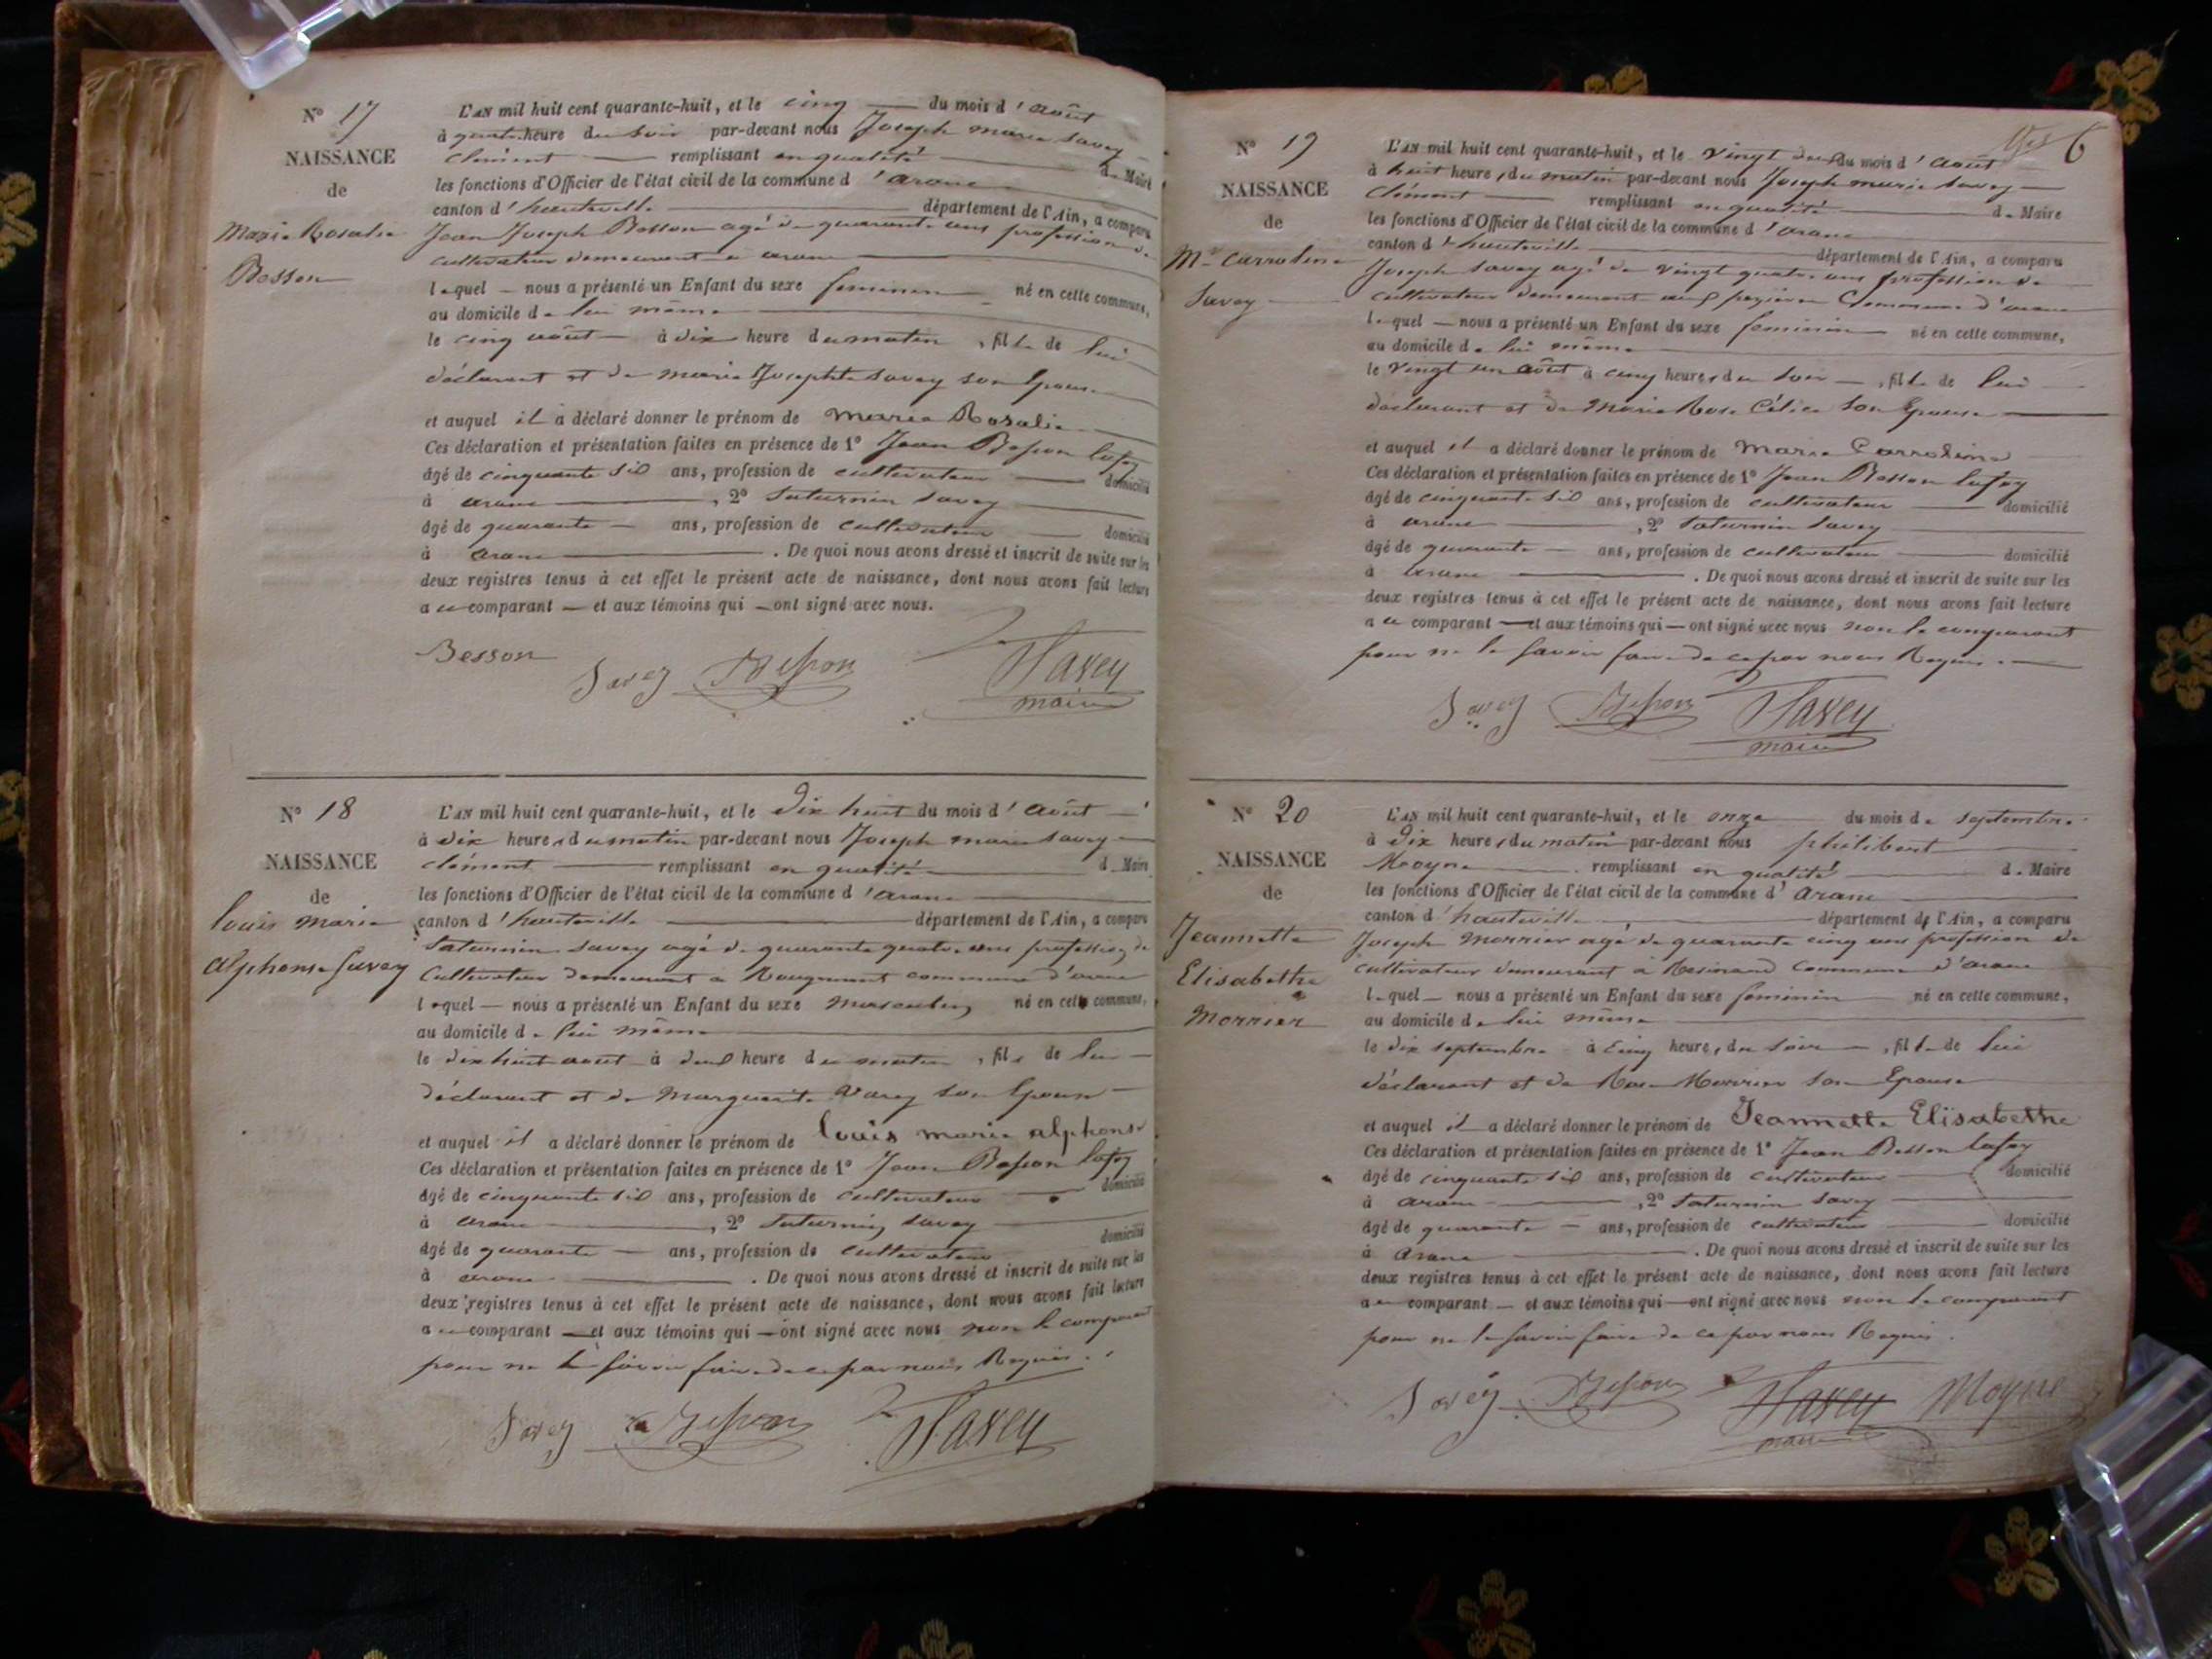 N° 17
NAISSANCE
de
Marie Rosalie
Besson
L'AN mil huit cent quarante-huit, et le cinq du mois d'août
à quatre heure du soir par-devant nous Joseph marie savey
clément remplissant en qualité de Maire
les fonctions d'Officier de l'état civil de la commune d'aranc
canton d'hauteville département de l'Ain, a comparu
Jean Joseph Besson agé de quarante ans profession de
cultivateur demeurant à aranc
lequel nous a présenté un Enfant du sexe feminin né en cette commune,
au domicile de lui même
le cinq août à dix heure du matin, fille de lui
déclarant et de marie Josephte savey son Epouse
et auquel il a déclaré donner le prénom de marie Rosalie
Ces déclaration et présentation faites en présence de 1° Jean Besson lafoy
âgé de cinquante six ans, profession de cultivateur domicilié
à aranc, 2° Saturnin savey
âgé de quarante ans, profession de cultivateur domicilié
à aranc. De quoi nous avons dressé et inscrit de suite sur les
deux registres tenus à cet effet le présent acte de naissance, dont nous avons fait lecture
a ce comparant et aux témoins qui ont signé avec nous.
Besson Savey Besson Savey
maire
N° 18
NAISSANCE
de
louis marie
alphonse Savey
L'AN mil huit cent quarante-huit, et le Dix huit du mois d'août
à dix heures du matin par-devant nous Joseph marie savey
clément remplissant en qualité de Maire
les fonctions d'Officier de l'état civil de la commune d'aranc
canton d'hauteville département de l'Ain, a comparu
Saturnin savey agé de quarante quatre ans profession de
Cultivateur demeurant a Rougemont commune d'aranc
lequel nous a présenté un Enfant du sexe masculin né en cette commune,
au domicile de lui même
le dix huit aout à deux heure du matin, fils de lui
déclarant et de Marguerite Varey son Epouse
et auquel il a déclaré donner le prénom de louis marie alphonse
Ces déclaration et présentation faites en présence de 1° Jean Besson lafoy
âgé de cinquante six ans, profession de cultivateur domicilié
à aranc, 2° Saturnin savey
âgé de quarante ans, profession de cultivateur domicilié
à aranc. De quoi nous avons dressé et inscrit de suite sur les
deux registres tenus à cet effet le présent acte de naissance, dont nous avons fait lecture
a ce comparant et aux témoins qui ont signé avec nous non le comparant
pour ne le savoir faire de ce par nous Requis.
Savey Besson Savey
6
N° 19
NAISSANCE
de
Mie Carroline
Savey
L'AN mil huit cent quarante-huit, et le vingt deux du mois d'août
à huit heures du matin par-devant nous Joseph marie savey
Clément remplissant en qualité de Maire
les fonctions d'Officier de l'état civil de la commune d'aranc
canton d'hauteville département de l'Ain, a comparu
Joseph savey agé de vingt quatre ans profession de
cultivateur demeurant aux Commune d'aranc
lequel nous a présenté un Enfant du sexe feminin né en cette commune,
au domicile de lui même
le vingt un août à cinq heures du soir, fille de lui
declarant et de Marie Rose Son Epouse
et auquel il a déclaré donner le prénom de Marie Carroline
Ces déclaration et présentation faites en présence de 1° Jean Besson lafoy
âgé de cinquante six ans, profession de cultivateur domicilié
à aranc, 2° Saturnin savey
âgé de quarante ans, profession de cultivateur domicilié
à aranc. De quoi nous avons dressé et inscrit de suite sur les
deux registres tenus à cet effet le présent acte de naissance, dont nous avons fait lecture
a ce comparant et aux témoins qui ont signé avec nous non le comparant
pour ne le savoir faire de ce par nous Requis.
Savey Besson Savey
maire
N° 20
NAISSANCE
de
Jeannette
Elisabethe
Morrier
L'AN mil huit cent quarante-huit, et le onze du mois de septembre
à Dix heures du matin par-devant nous philibert
Moyne remplissant en qualité de Maire
les fonctions d'Officier de l'état civil de la commune d'Aranc
canton d'hauteville département de l'Ain, a comparu
Joseph Morrier agé de quarante cinq ans profession de
cultivateur demeurant à Resinand Commune d'aranc
lequel nous a présenté un Enfant du sexe féminin né en cette commune,
au domicile de lui même
le dix septembre à Cinq heures du soir, fille de lui
déclarant et de Rose Morrier son Epouse
et auquel il a déclaré donner le prénom de Jeannette Elisabethe
Ces déclaration et présentation faites en présence de 1° Jean Besson lafoy
âgé de cinquante six ans, profession de cultivateur domicilié
à aranc, 2° Saturnin savey
âgé de quarante ans, profession de cultivateur domicilié
à Aranc. De quoi nous avons dressé et inscrit de suite sur les
deux registres tenus à cet effet le présent acte de naissance, dont nous avons fait lecture
a ce comparant et aux témoins qui ont signé avec nous non le comparant
pour ne le savoir faire de ce par nous Requis.
Savey Besson Savey Moyne
maire